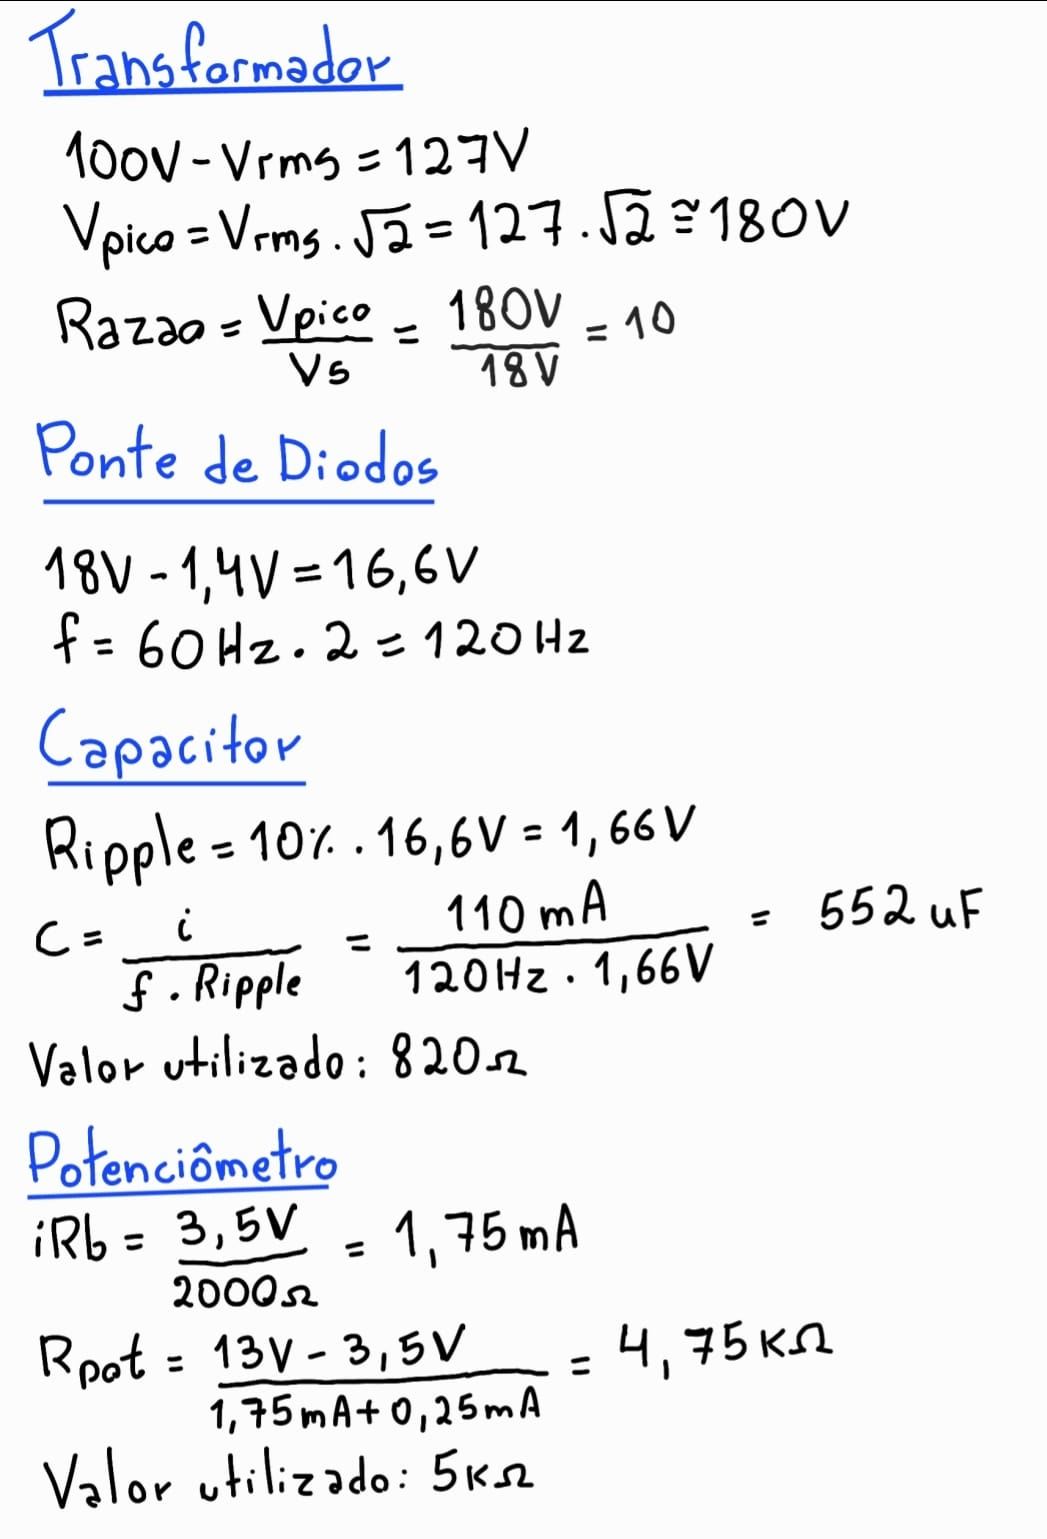 Transformador
100V - Vrms = 127V
Vpico = Vrms . √2 = 127 . √2 ≅ 180V
Razao = Vpico / Vs = 180V / 18V = 10
Ponte de Diodos
18V - 1,4V = 16,6V
f = 60Hz . 2 = 120Hz
Capacitor
Ripple = 10% . 16,6V = 1,66V
C = i / f . Ripple = 110mA / 120Hz . 1,66V = 552uF
Valor utilizado: 820Ω
Potenciômetro
iRb = 3,5V / 2000Ω = 1,75mA
Rpot = 13V - 3,5V / 1,75mA + 0,25mA = 4,75KΩ
Valor utilizado: 5KΩ